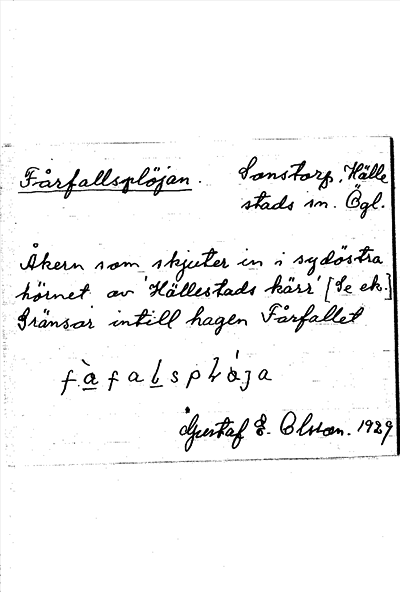 Fårfallsplöjan. Sonstorp, Hälle
stads sn. Ögl.
Åkern som skjuter in i sydöstra
hörnet av 'Hällestads kärr' [Se ek.]
Gränsar intill hagen Fårfallet
Gustaf E. Olsson. 1929